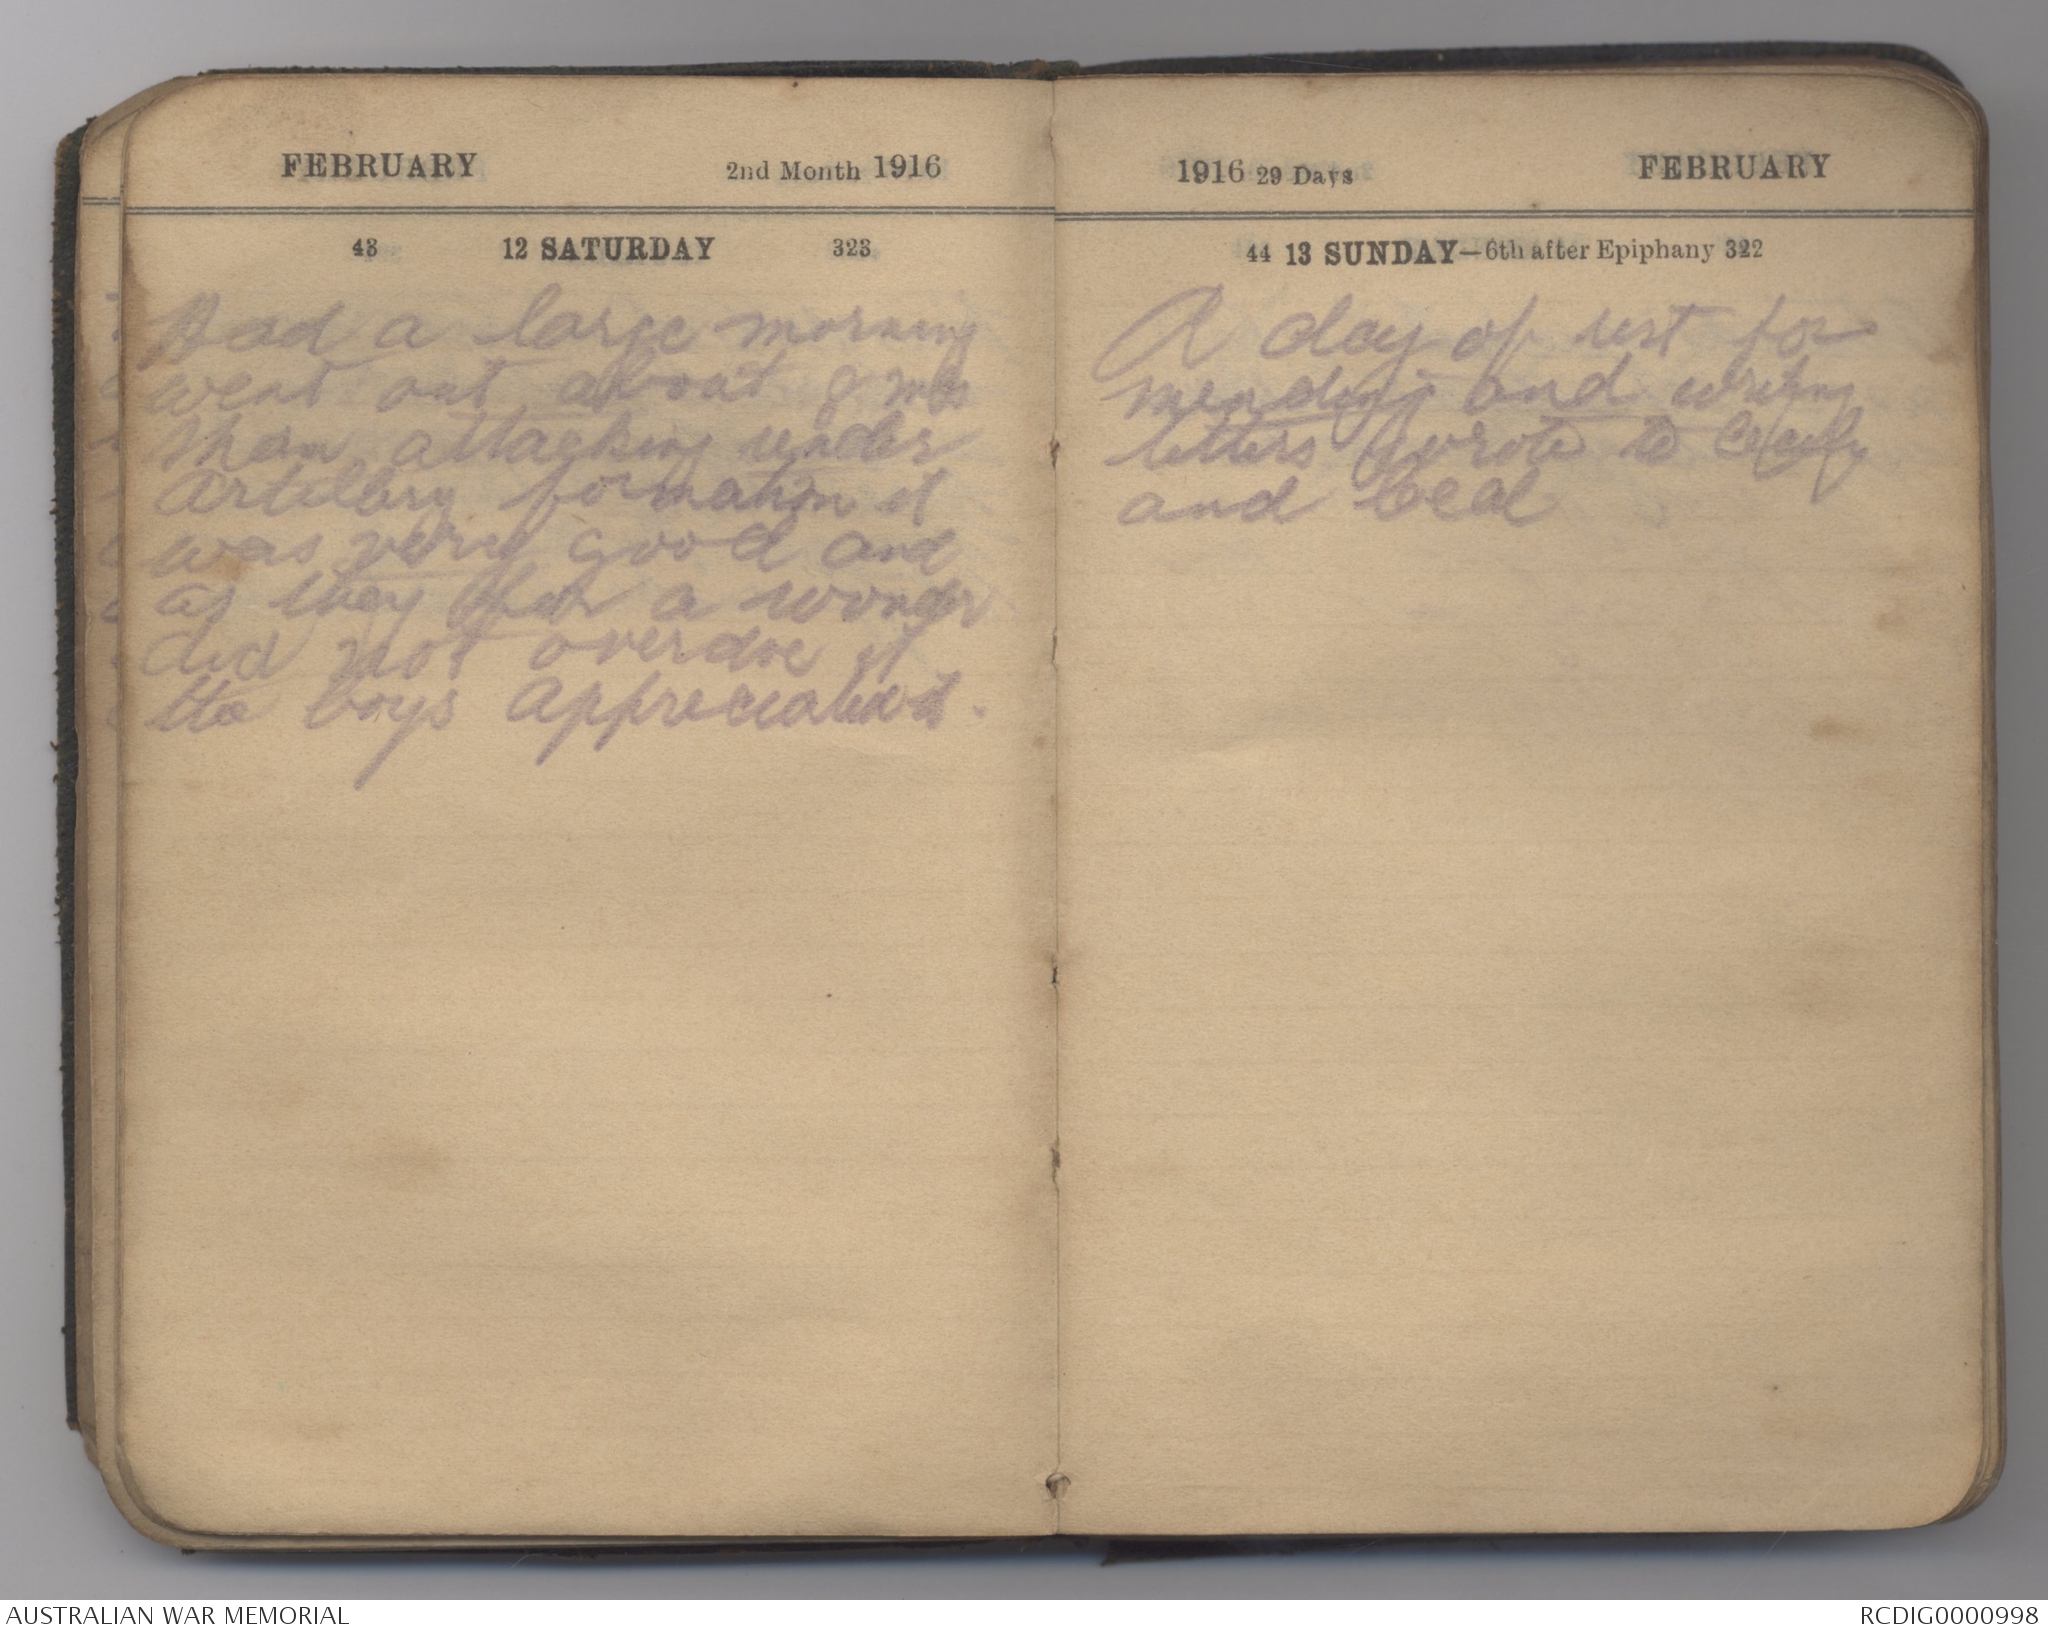 FEBRUARY 2nd Month 1916
43 12 SATURDAY 323
Had a large morning
went out about 8 mls
then attacking under
artillery formation it
was very good and
as they for a wonder
did not overdoe it
the boys appreciated it.
1916 29 Days FEBRUARY
44 13 SUNDAY—6th after Epiphany 322
A day of rest for
mending and writing
letters I wrote to
and
AUSTRALIAN WAR MEMORIAL
RCDIG0000998